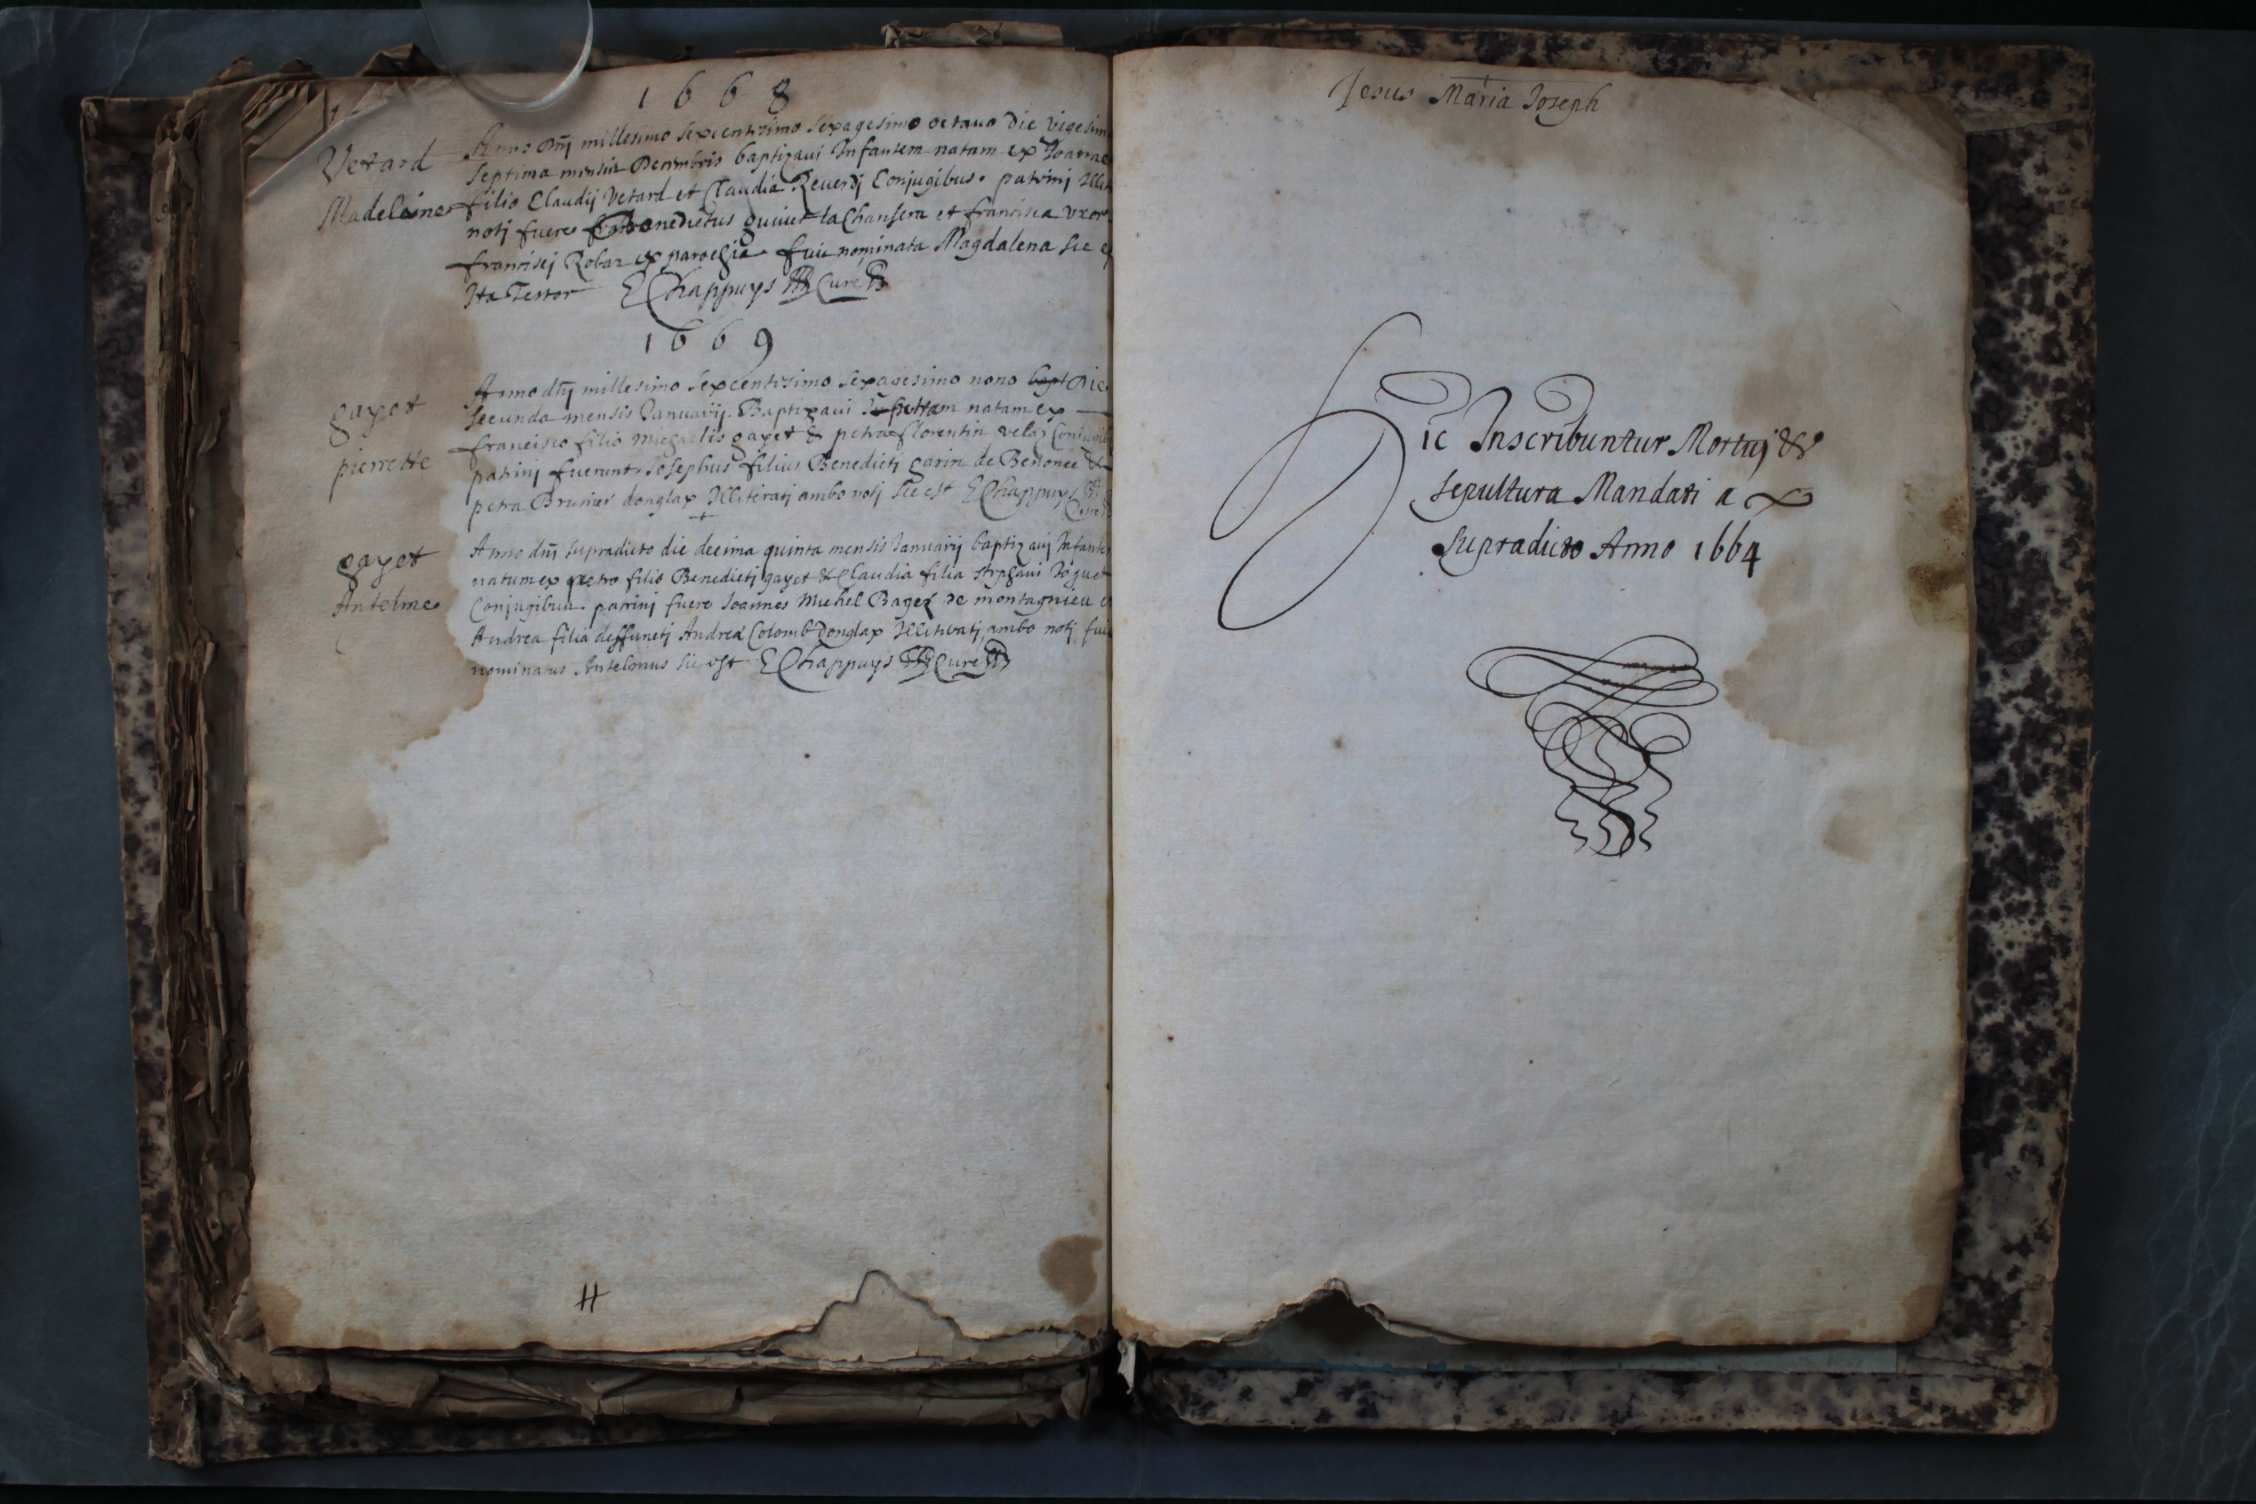 1668
Vetard
Madeleine
Anno dnj millesimo sexcentesimo sexagesimo octavo Die vigesim
septima mensis Decembris baptizavi Infantem natam ex Joanne
filio Claudij Vetard et Claudia Reverdj Conjugibus. patrinj
notj fuere Benedictus guivet la Chansera et francisca Uxor
francisej Robaz ex parochia fuit nominata Magdalena sic
Ita Testor EChappuys Curé
1669
gayet
pierrette
Anno dnj millesimo sexcentesimo sexagesimo nono bapt Die
secunda mensis Januarij Baptizavi natam ex
francisco filio michaelis gayet & petra florentin velaz Conjugib
patrinj fuerunt Josephus filius Benedictj garin de Bedonee &
petra Brunier donglax Illiteratj ambo notj sic est EChappuys
Curé
gayet
Antelme
Anno dnj supradicto die decima quinta mensis Januarij baptizavj Infante
natum ex petro filio Benedictj gayet & Claudia filia stephani Joguet
Conjugibus patrinj fuere Joannes Michel Bagez de montagnieu e
Andrea filia deffunctj Andreæ Colomb Donglax Illiteratj ambo notj fui
nominatus Antelmus sic est EChappuys Curé
H
Jesus Maria Joseph
Hic Inscribuntur Mortuj &
sepultura Mandati a
supradicto Anno 1664